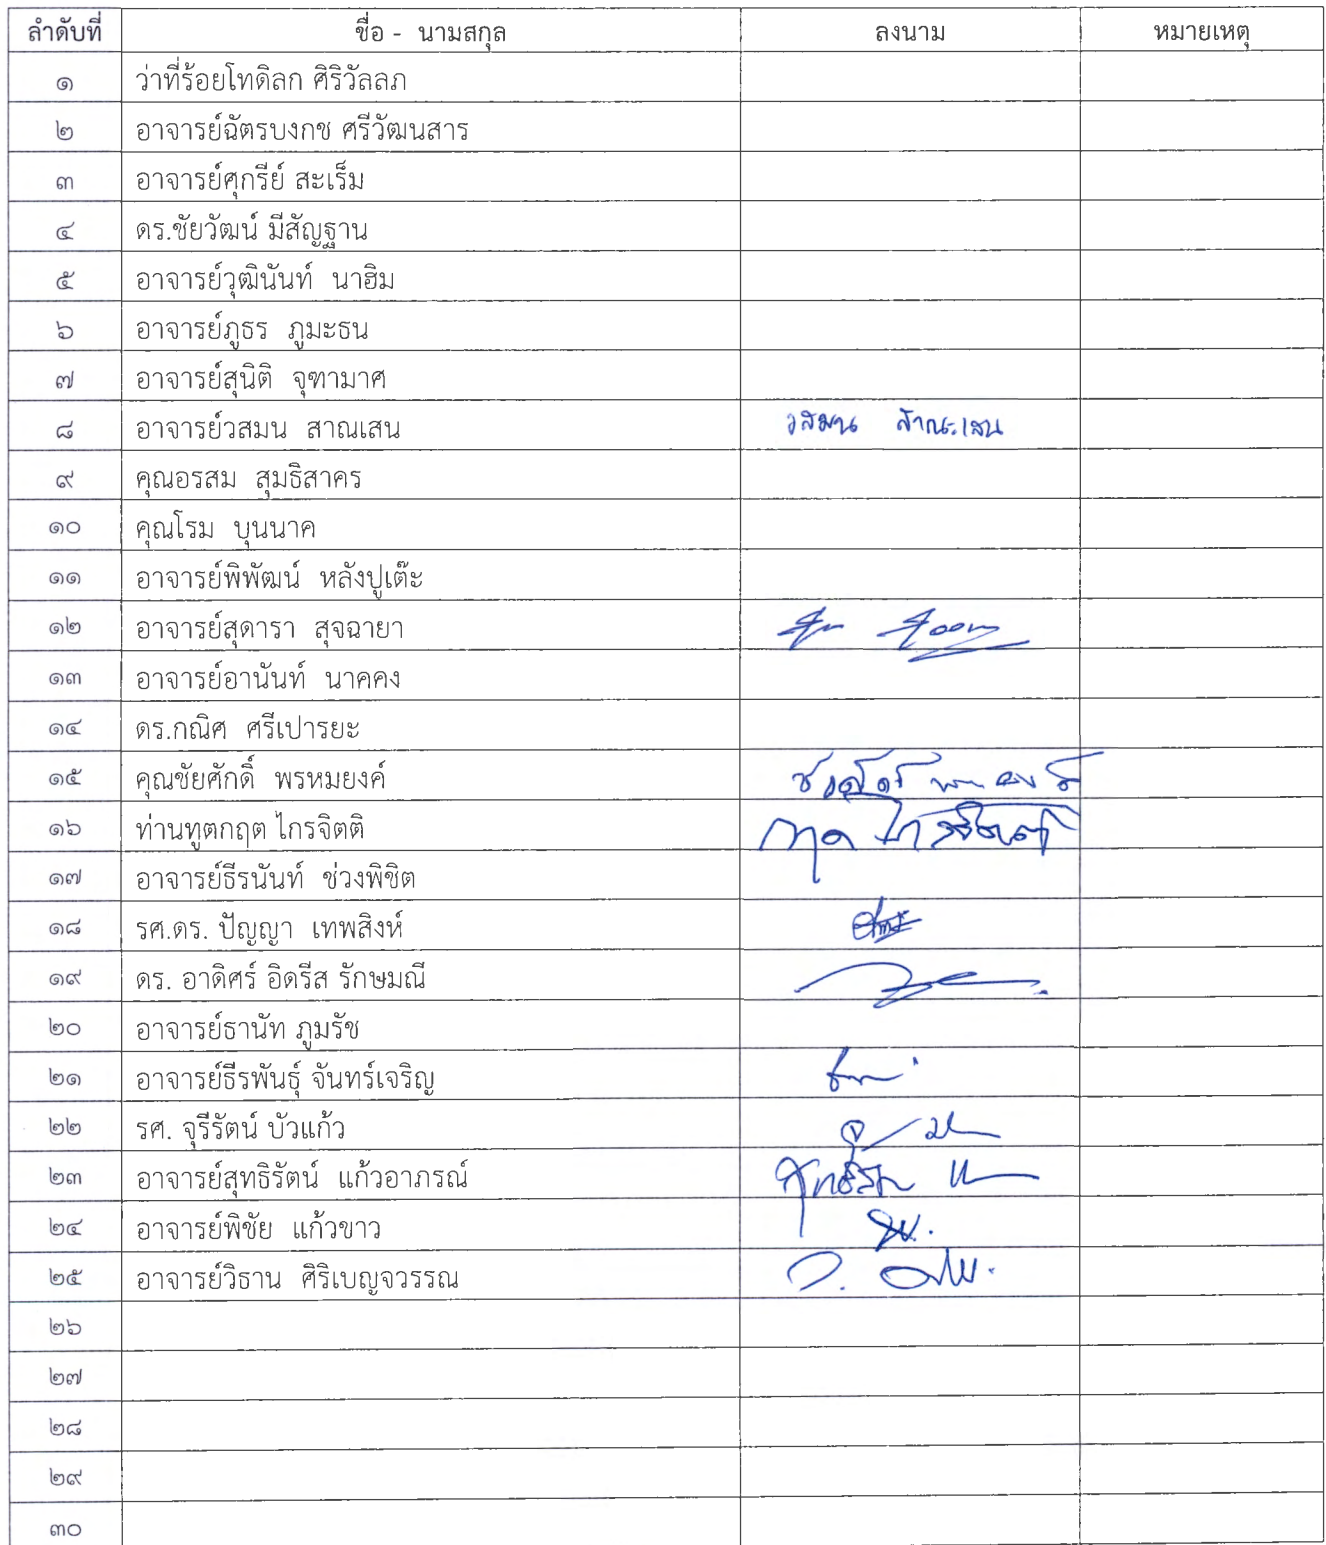 ลำดับที่ ชื่อ - นามสกุล ลงนาม หมายเหตุ
๑ ว่าที่ร้อยโทดิลก ศิริวัลลภ
๒ อาจารย์ฉัตรบงกช ศรีวัฒนสาร
๓ อาจารย์ศุกรีย์ สะเร็ม
๔ ดร.ชัยวัฒน์ มีสัญฐาน
๕ อาจารย์วุฒินันท์ นาฮิม
๖ อาจารย์ภูธร ภูมะธน
๗ อาจารย์สุนิติ จุฑามาศ
๘ อาจารย์วสมน สาณเสน วสมน สาณะเสน
๙ คุณอรสม สุมธิสาคร
๑๐ คุณโรม บุนนาค
๑๑ อาจารย์พิพัฒน์ หลังปูเต๊ะ
๑๒ อาจารย์สุดารา สุจฉายา
๑๓ อาจารย์อานันท์ นาคคง
๑๔ ดร.กณิศ ศรีเปารยะ
๑๕ คุณชัยศักดิ์ พรหมยงค์
๑๖ ท่านทูตกฤต ไกรจิตติ
๑๗ อาจารย์ธีรนันท์ ช่วงพิชิต
๑๘ รศ.ดร. ปัญญา เทพสิงห์
๑๙ ดร. อาดิศร์ อิดรีส รักษมณี
๒๐ อาจารย์ธานัท ภูมรัช
๒๑ อาจารย์ธีรพันธุ์ จันทร์เจริญ
๒๒ รศ. จุรีรัตน์ บัวแก้ว
๒๓ อาจารย์สุทธิรัตน์ แก้วอาภรณ์
๒๔ อาจารย์พิชัย แก้วขาว
๒๕ อาจารย์วิธาน ศิริเบญจวรรณ
๒๖
๒๗
๒๘
๒๙
๓๐